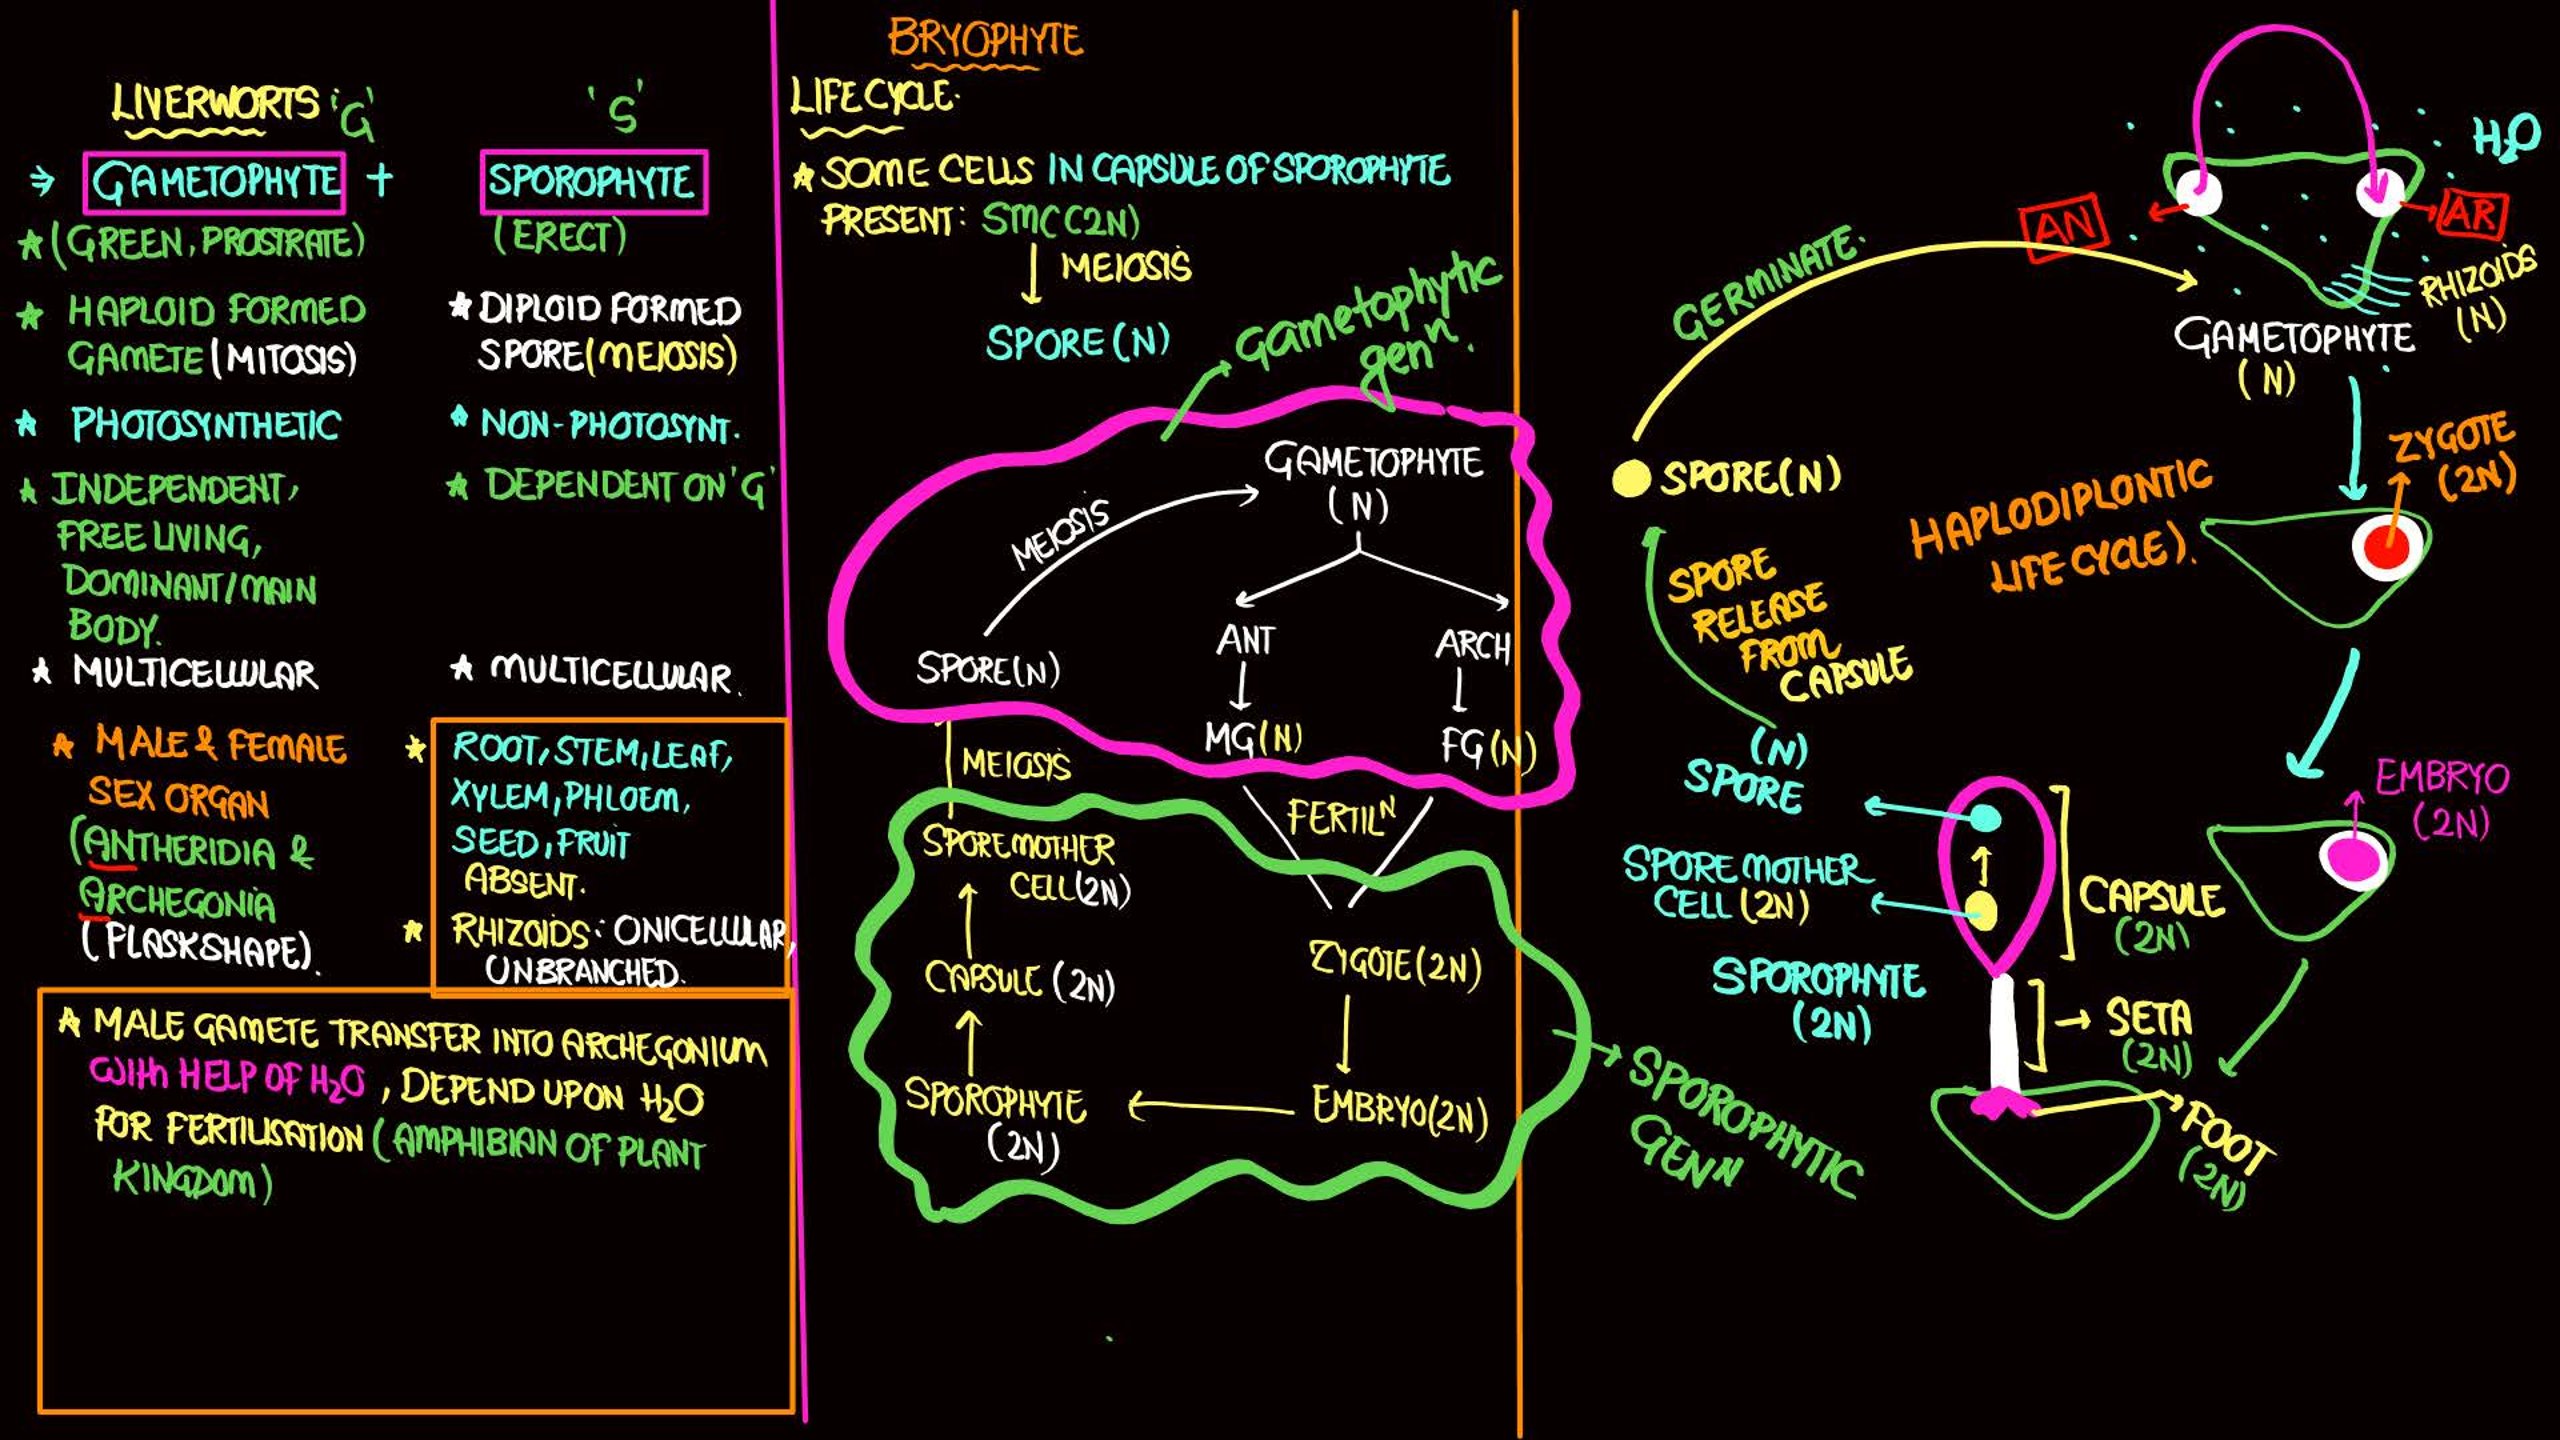 LIVERWORTS 'G'
'S'
→ GAMETOPHYTE +
SPOROPHYTE
★ (GREEN, PROSTRATE)
(ERECT)
★ HAPLOID FORMED
GAMETE (MITOSIS)
★ DIPLOID FORMED
SPORE (MEIOSIS)
★ PHOTOSYNTHETIC
★ NON-PHOTOSYNT.
★ INDEPENDENT,
FREE LIVING,
DOMINANT/MAIN
BODY.
★ DEPENDENT ON 'G'
★ MULTICELLULAR
★ MULTICELLULAR.
★ MALE & FEMALE
SEX ORGAN
(ANTHERIDIA &
ARCHEGONIA
(FLASKSHAPE).
★ ROOT, STEM, LEAF,
XYLEM, PHLOEM,
SEED, FRUIT
ABSENT.
★ RHIZOIDS: ONICELLULAR,
UNBRANCHED.
★ MALE GAMETE TRANSFER INTO ARCHEGONIUM
With HELP OF H₂O, DEPEND UPON H₂O
FOR FERTILISATION (AMPHIBIAN OF PLANT
KINGDOM)
BRYOPHYTE
LIFE CYCLE.
★ SOME CELLS IN CAPSULE OF SPOROPHYTE
PRESENT: SMC (2N)
MEIOSIS
SPORE (N)
Gametophytic
genⁿ.
GAMETOPHYTE
(N)
MEIOSIS
ANT
ARCH
SPORE(N)
MG(N)
FG(N)
MEIOSIS
FERTILᴺ
SPORE MOTHER
CELL (2N)
CAPSULE (2N)
ZYGOTE (2N)
SPOROPHYTE
(2N)
EMBRYO(2N)
SPOROPHYTIC
GENᴺ
H₂O
AN
AR
RHIZOIDS
(N)
GERMINATE.
GAMETOPHYTE
(N)
SPORE(N)
ZYGOTE
(2N)
HAPLODIPLONTIC
LIFE CYCLE).
SPORE
RELEASE
FROM
CAPSULE
(N)
SPORE
EMBRYO
(2N)
SPORE MOTHER
CELL (2N)
CAPSULE
(2N)
SPOROPHYTE
(2N)
→ SETA
(2N)
FOOT
(2N)